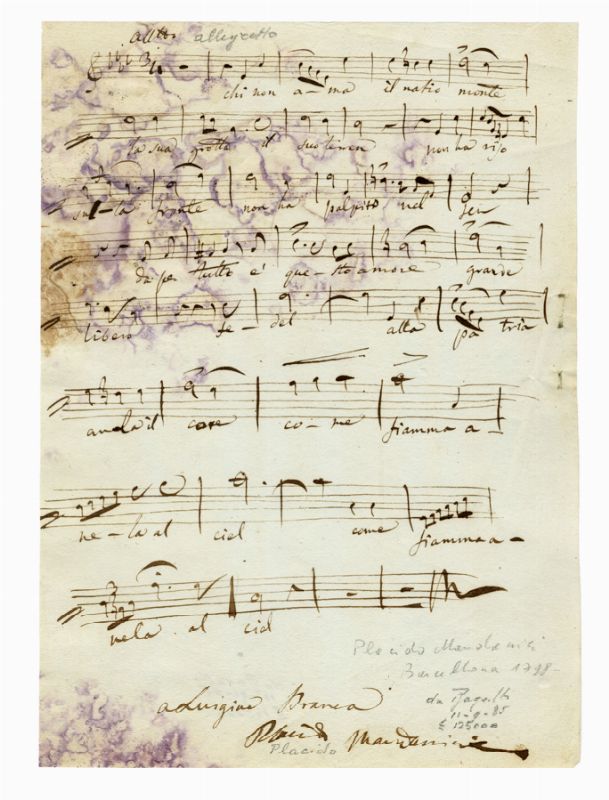 allegretto
chi non a - ma il natio monte
la sua grotta il suo non ha riso
sul - la fronte non ha palpito nel sen
da per tutto e' que - sto amore grande
libero fe - del alta pa tria
anela il core co - me fiamma a -
ne - la al ciel come fiamma a -
nela al ciel
Placido Mandanici
Barcellona 1798 -
a Luigina Branca
11-9-85
£ 125000
Placido Mandanici
Placido